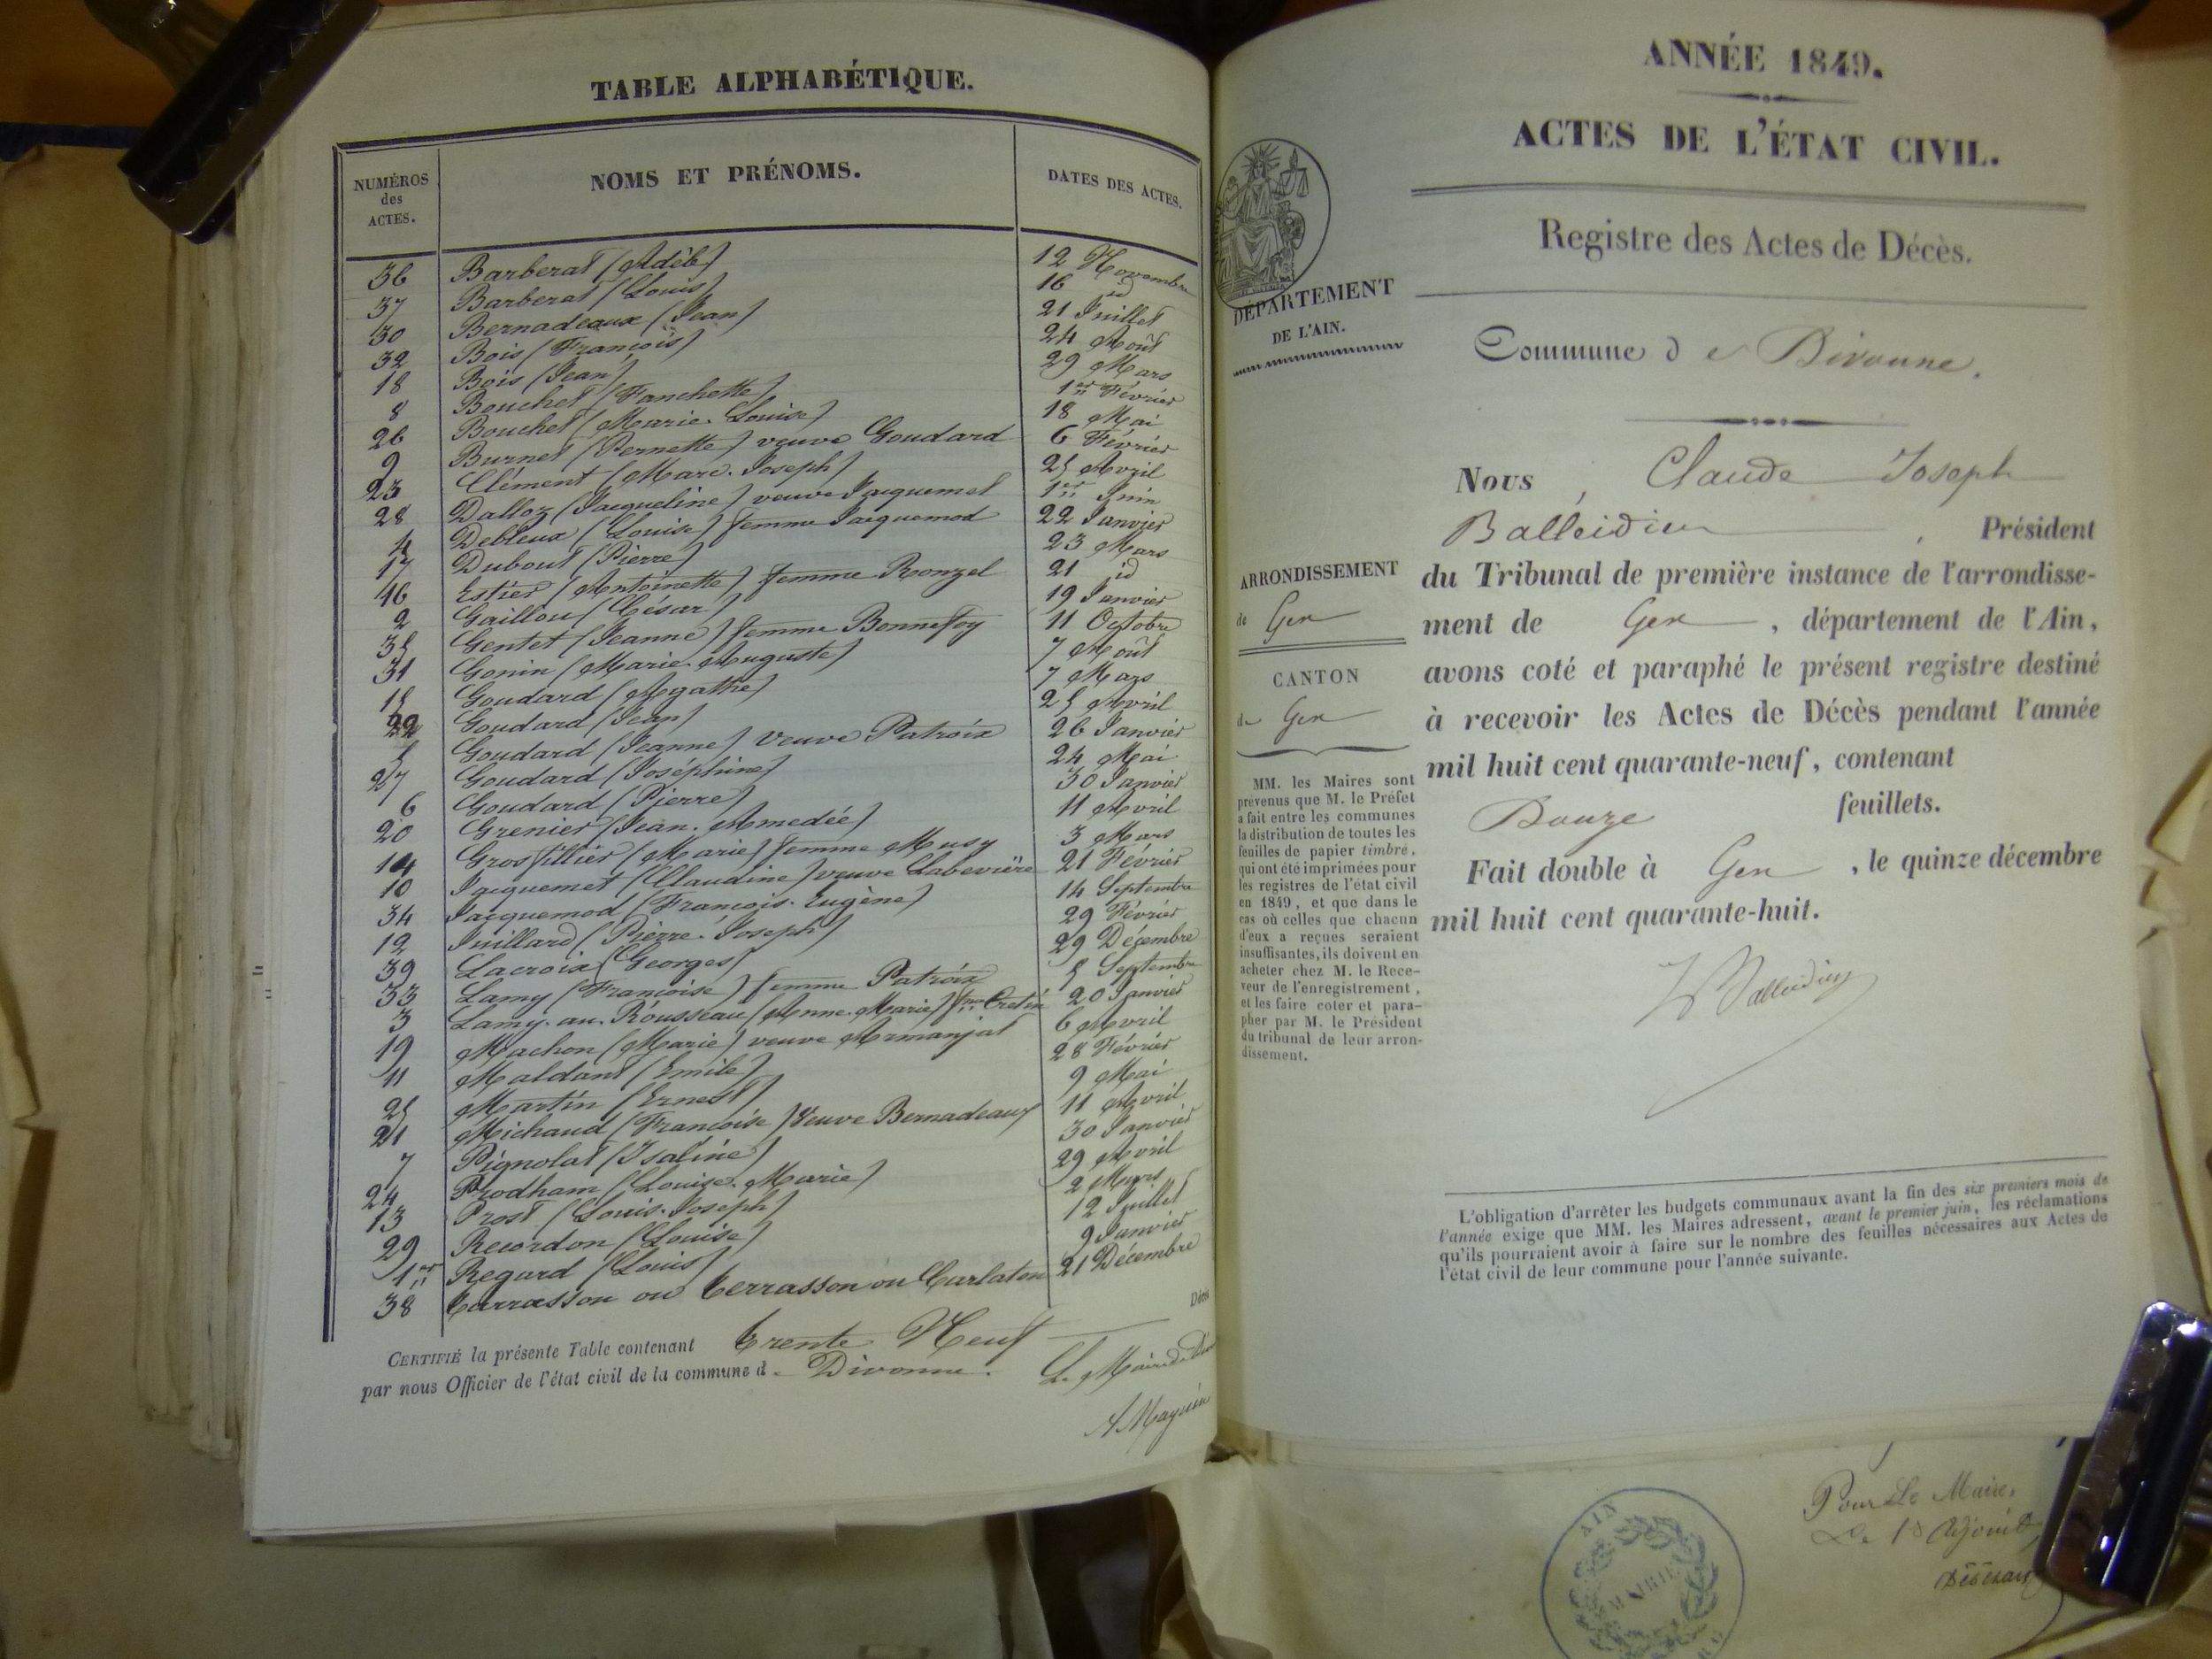 TABLE ALPHABÉTIQUE.
NUMÉROS des ACTES. NOMS ET PRÉNOMS. DATES DES ACTES.
36 Barberat (Adèle) 12 Novembre
37 Barberat (Louis) 16 id
30 Bernadeaux (Jean) 21 Juillet
32 Bois (François) 24 Août
18 Bois (Jean) 29 Mars
8 Bouchet (Fanchette) 1er Février
26 Bouchet (Marie. Louise) 18 Mai
9 Burnet (Pernette) veuve Goudard 6 Février
23 Clément (Marc. Joseph) 25 Avril
28 Dalloz (Jacqueline) veuve Jacquemet 1er Juin
4 Debleux (Louise) femme Jacquemod 22 Janvier
17 Dubout (Pierre) 23 Mars
16 Estier (Antoinette) femme Ronzel 21 id
2 Gaillou (César) 19 Janvier
35 Gentet (Jeanne) femme Bonnefoy 11 Octobre
31 Gonin (Marie. Auguste) 7 Août
15 Goudard (Agathe) 7 Mars
22 Goudard (Jean) 25 Avril
5 Goudard (Jeanne) veuve Patroix 26 Janvier
27 Goudard (Joséphine) 24 Mai
6 Goudard (Pierre) 30 Janvier
20 Grenier (Jean. Amedée) 11 Avril
14 Grosfillier (Marie) femme Musy 3 Mars
10 Jacquemet (Claudine) veuve Labevière 21 Février
34 Jacquemod (François. Eugène) 14 Septembre
12 Juillard (Pierre. Joseph) 29 Février
39 Lacroix (Georges) 29 Décembre
33 Lamy (Françoise) femme Patroix 5 Septembre
3 Lamy. au. Rousseau (Anne. Marie) fme Cretin 20 Janvier
19 Machon (Marie) veuve Armanjat 6 Avril
11 Maldant (Emile) 28 Février
25 Martin (Ernest) 9 Mai
21 Michaud (Françoise) Veuve Bernadeaux 11 Avril
7 Pignolat (Isaline) 30 Janvier
24 Prodham (Louise. Marie) 29 Avril
13 Prost (Louis. Joseph) 2 Mars
29 Recordon (Louise) 12 Juillet
1er Regard (Louis) 9 Janvier
38 Tarrasson ou Terrasson ou Carlaton 21 Décembre
Décès
CERTIFIÉ la présente Table contenant Trente Neuf
par nous Officier de l'état civil de la commune d. Divonne. Le Maire de
A Maynin
ANNÉE 1849.
ACTES DE L'ÉTAT CIVIL.
Registre des Actes de Décès.
DÉPARTEMENT
DE L'AIN.
Commune de Divonne.
Nous, Claude Joseph
Balleidier, Président
du Tribunal de première instance de l'arrondisse-
ment de Gex, département de l'Ain,
avons coté et paraphé le présent registre destiné
à recevoir les Actes de Décès pendant l'année
mil huit cent quarante-neuf, contenant
Douze feuillets.
Fait double à Gex, le quinze décembre
mil huit cent quarante-huit.
Balleidier
ARRONDISSEMENT
de Gex
CANTON
de Gex
MM. les Maires sont
prévenus que M. le Préfet
a fait entre les communes
la distribution de toutes les
feuilles de papier timbré,
qui ont été imprimées pour
les registres de l'état civil
en 1849, et que dans le
cas où celles que chacun
d'eux a reçues seraient
insuffisantes, ils doivent en
acheter chez M. le Rece-
veur de l'enregistrement,
et les faire coter et para-
pher par M. le Président
du tribunal de leur arron-
dissement.
L'obligation d'arrêter les budgets communaux avant la fin des six premiers mois de
l'année exige que MM. les Maires adressent, avant le premier juin, les réclamations
qu'ils pourraient avoir à faire sur le nombre des feuilles nécessaires aux Actes de
l'état civil de leur commune pour l'année suivante.
Pour Le Maire,
Le 1r Adjoint
AIN
MAIRIE